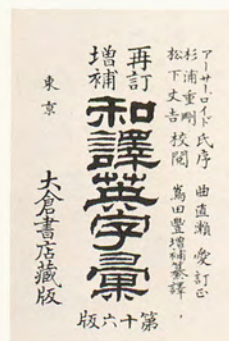 アーサー、ロイド氏序
杉浦重剛
松下丈吉 校閲
曲直瀬 愛訂正
嶌田豊増補纂譯
再訂
増補
和譯英字彙
東京
大倉書店蔵版
第十六版